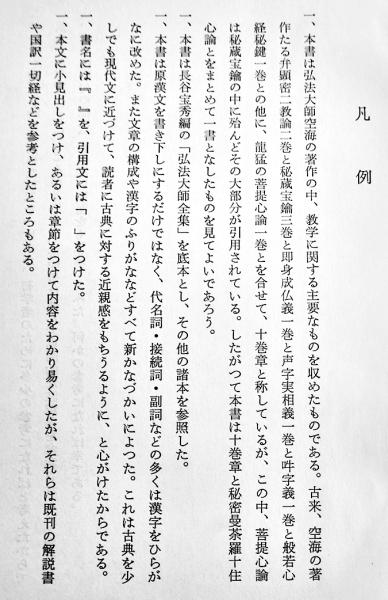 凡例
一、本書は弘法大師空海の著作の中、教学に関する主要なものを収めたものである。古来、空海の著
作たる弁顕密二教論二巻と秘蔵宝鑰三巻と即身成仏義一巻と声字実相義一巻と吽字義一巻と般若心
経秘鍵一巻との他に、龍猛の菩提心論一巻とを合せて、十巻章と称しているが、この中、菩提心論
は秘蔵宝鑰の中に殆んどその大部分が引用されている。したがつて本書は十巻章と秘密曼荼羅十住
心論とをまとめて一書となしたものを見てよいであろう。
一、本書は長谷宝秀編の「弘法大師全集」を底本とし、その他の諸本を参照した。
一、本書は原漢文を書き下しにするだけではなく、代名詞・接続詞・副詞などの多くは漢字をひらが
なに改めた。また文章の構成や漢字のふりがななどすべて新かなづかいによつた。これは古典を少
しでも現代文に近づけて、読者に古典に対する近親感をもちうるように、と心がけたからである。
一、書名には『 』を、引用文には「 」をつけた。
一、本文に小見出しをつけ、あるいは章節をつけて内容をわかり易くしたが、それらは既刊の解説書
や国訳一切経などを参考としたところもある。